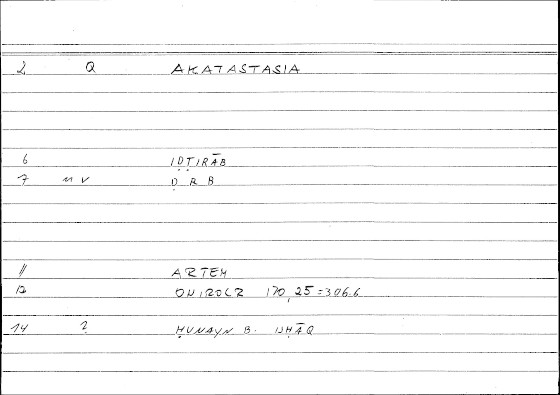 2 Q AKATASTASIA
6 IḌṬIRĀB
7 MV Ḍ R B
11 ARTEM
12 ONIROCR 170,25=306.6
14 2 ḤUNAYN B. ISḤĀQ